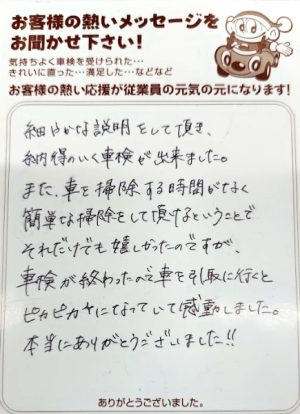 お客様の熱いメッセージを
お聞かせ下さい！
気持ちよく車検を受けられた…
きれいに直った…満足した…などなど
お客様の熱い応援が従業員の元気の元になります！
細やかな説明をして頂き、
納得のいく車検が出来ました。
また、車を掃除する時間がなく
簡単な掃除をして頂けるということで
それだけでも嬉しかったのですが、
車検が終わったので車を引取に行くと
ピカピカになっていて感動しました。
本当にありがとうございました!!
ありがとうございました。